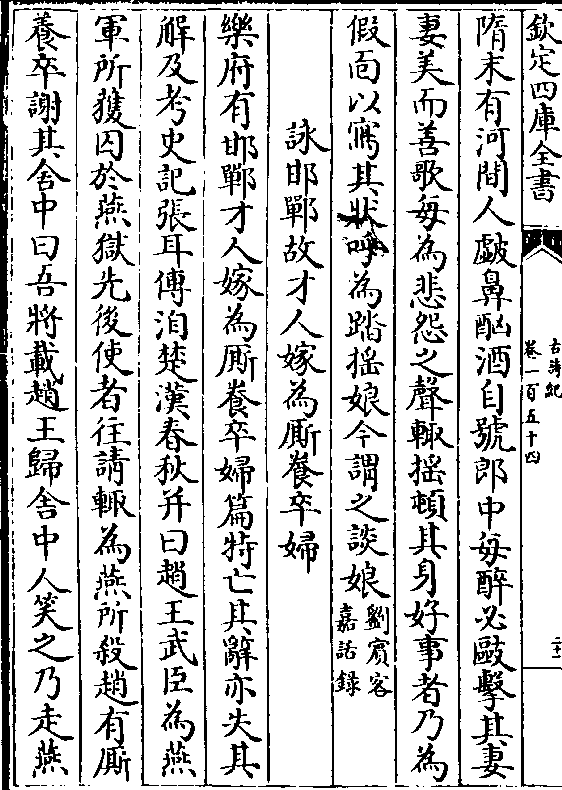 欽定四庫全書
古詩紀
卷一百五十四
二十一
隋末有河間人皻鼻酗酒自號郎中每醉必毆擊其妻
妻美而善歌每為悲怨之聲輙揺頓其身好事者乃為
假靣以寫其狀呼為踏揺娘今謂之談娘劉賓客
嘉話錄
詠邯鄲故才人嫁為厮養卒婦
樂府有邯鄲才人嫁為厮養卒婦篇特亡其辭亦失其
解及考史記張耳傳洎楚漢春秋并曰趙王武臣為燕
軍所獲囚於燕獄先後使者往請輙為燕所殺趙有厮
養卒謝其舍中曰吾將載趙王歸舍中人笑之乃走燕